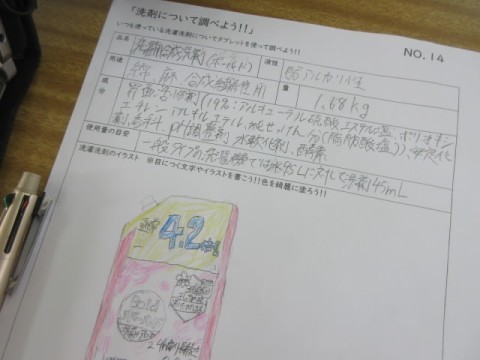 「洗剤について調べよう！！」
いつも使っている洗濯洗剤についてタブレットを使って調べよう！！
NO.14
品名 洗濯用合成洗剤(ボールド) 液性 弱アルカリ性
用途 綿、麻、合成繊維用 量 1.68kg
成分 界面活性剤(19%:アルキル
エチレンアルキルエーテル、純せっけん分(脂肪酸塩))、安定化
剤、香料、pH調整剤、水軟化剤、酵素
使用量の目安 水45Lに対して洗剤45mL
洗濯洗剤のイラスト ※目につく文字やイラストを書こう！！色を綺麗に塗ろう！！
通常
4.2
Bold